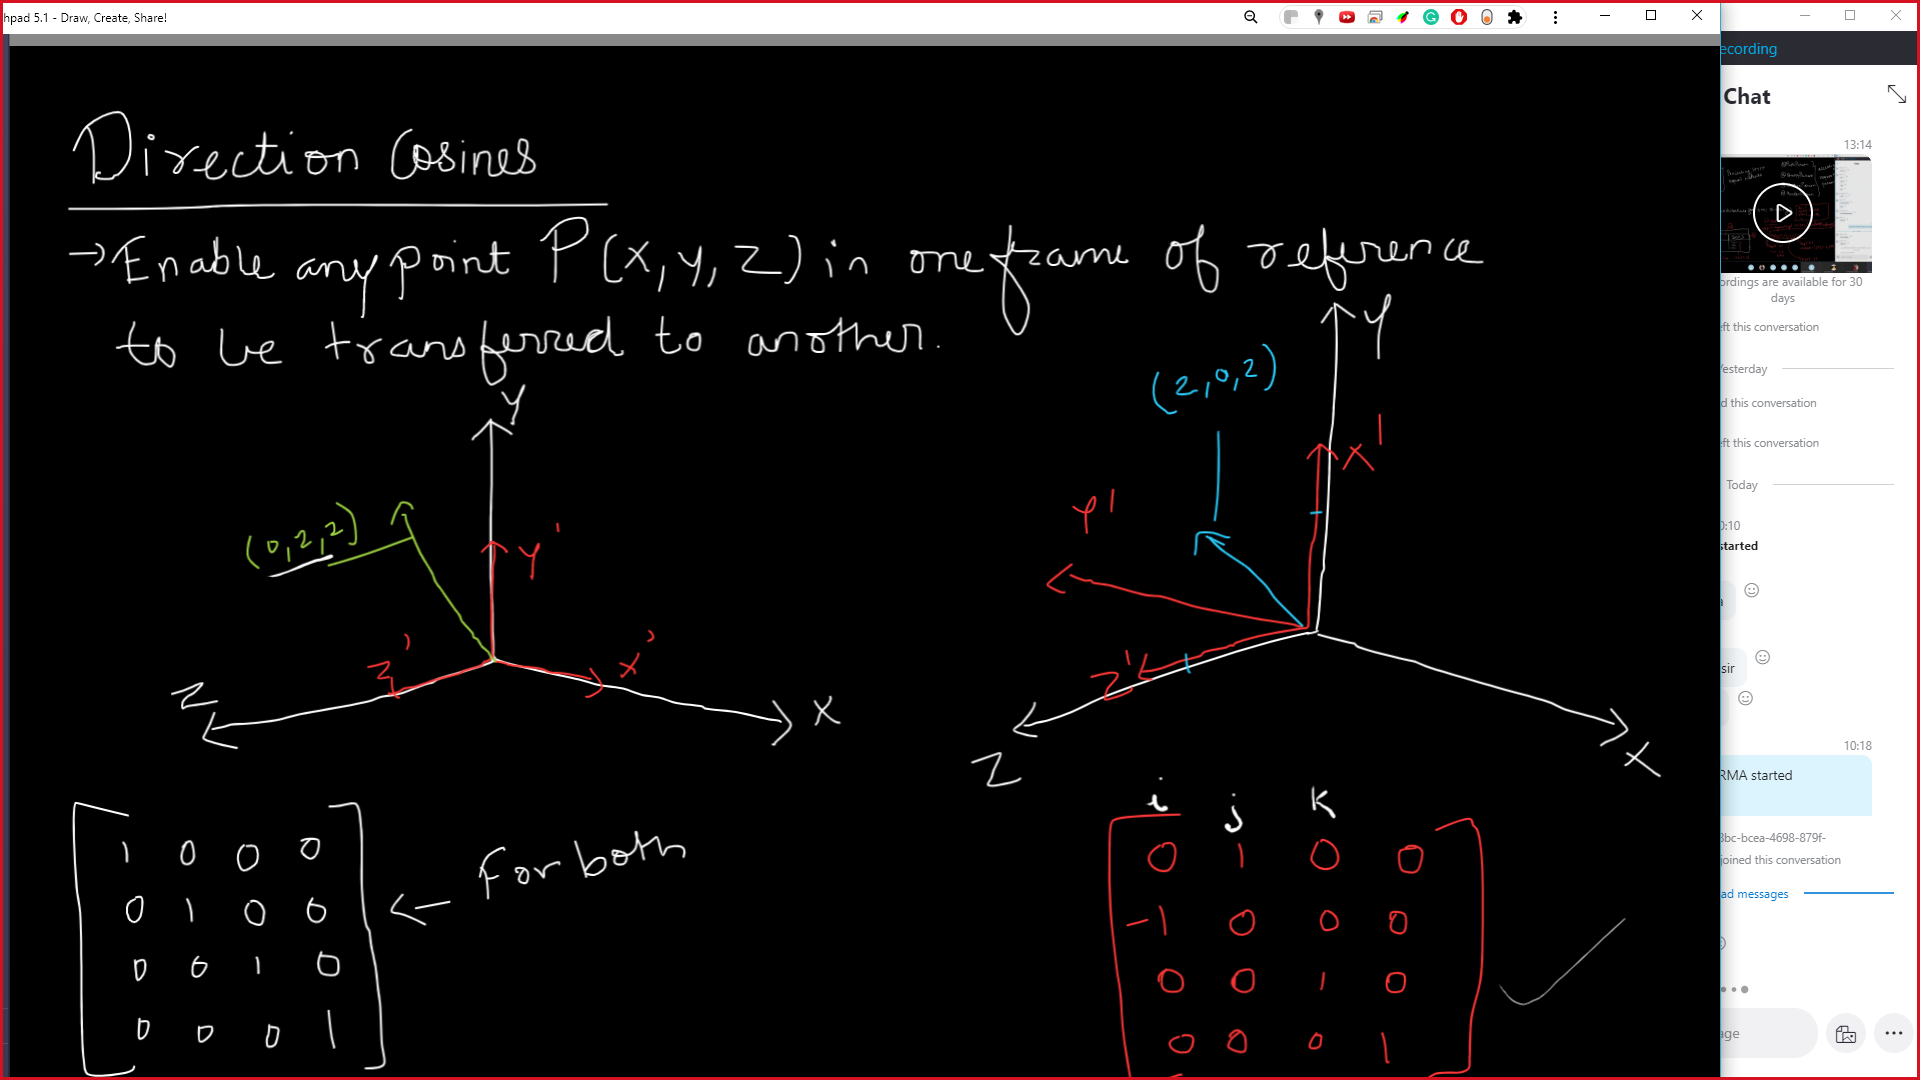 hpad 5.1 - Draw, Create, Share!
Direction Cosines
→ Enable any point P(X, Y, Z) in one frame of reference
to be transferred to another.
Y
(0,2,2)
Y'
Z'
X'
Z
X
Y
(2,0,2)
X'
Y'
Z'
Z
X
1 0 0 0
0 1 0 0
0 0 1 0
0 0 0 1
← For both
i j k
0 1 0 0
-1 0 0 0
0 0 1 0
0 0 0 1
ecording
Chat
13:14
ordings are available for 30
days
eft this conversation
Yesterday
d this conversation
eft this conversation
Today
0:10
started
sir
10:18
RMA started
3bc-bcea-4698-879f-
joined this conversation
ad messages
age